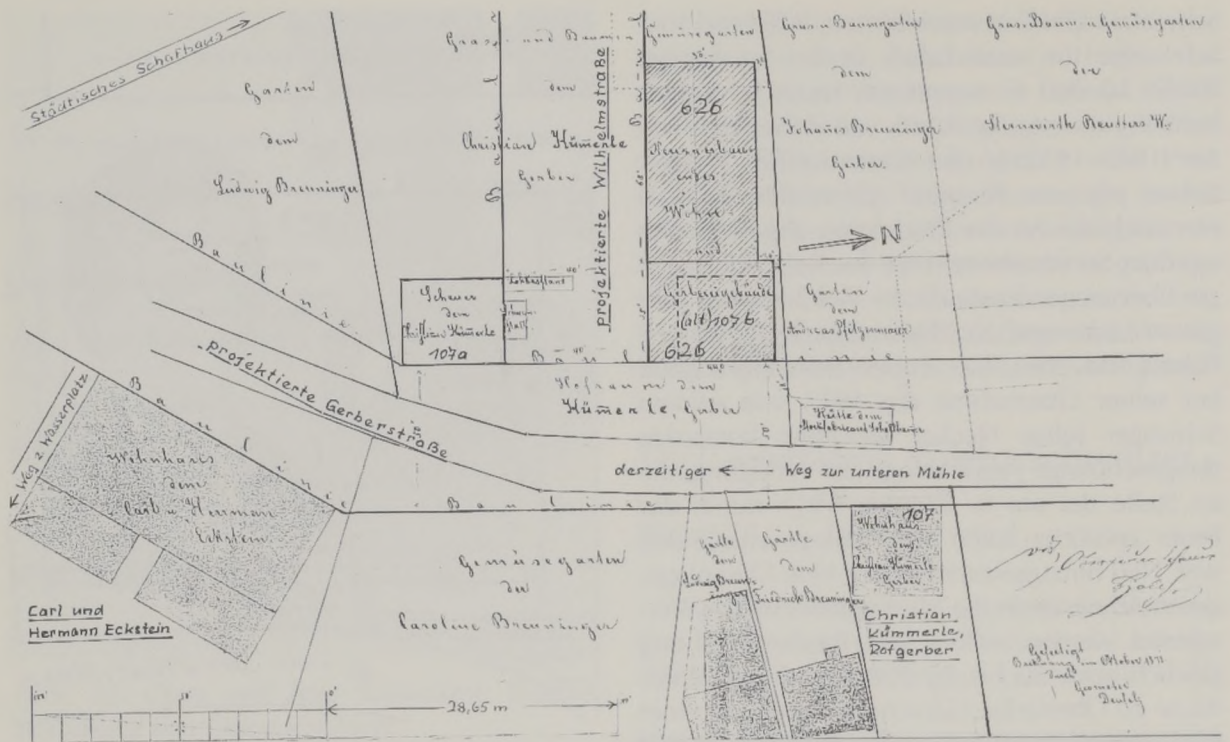 Städtisches Schafhaus
Garten
dem
Ludwig Breuninger
Gras- und Baum-
dem
Christian Kümerle
Gerber
projektierte Wilhelmstraße
Gemüsegarten
626
Wohn-
und
Gerbereigebäude
(alt) 107b
626
Gras u Baumgarten
dem
Johañes Breuninger
Gerber.
Gras-Baum- u Gemüsegarten
der
Sternwirth Reutters W.
N
Garten
dem
Andreas Pfitzenmaier
Scheuer
dem
Christian Kümerle
107a
Stall
Baulinie
Baulinie
Hofraum dem
Kümerle, Gerber
Hütte dem
projektierte Gerberstraße
derzeitiger ← Weg zur unteren Mühle
Weg z. Wasserplatz
Baulinie
Baulinie
Wohnhaus
dem
Carl u Herman
Eckstein.
Carl und
Hermann Eckstein
Gemüsegarten
der
Caroline Breuninger
Gärtle
dem
Ludwig Breuninger
Gärtle
dem
Friedrich Breuninger
107
Wohnhaus
dem
Christian Kümerle
Gerber
Christian
Kümmerle,
Rotgerber
Gefertigt
Backnang im Oktober 1871
durch
Geometer
28,65 m